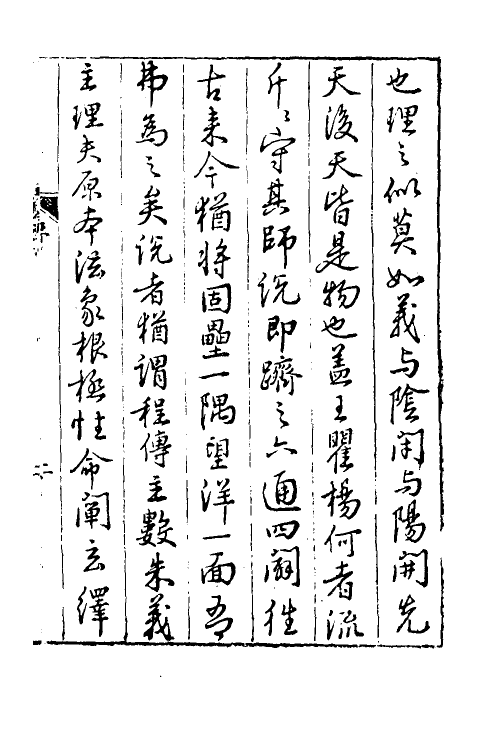 也理之似莫如義与陰閉与陽開先
天後天皆是物也盖王瞿楊何者流
斤〻守其師說即躋之六通四闢往
古来今猶將固壘一隅望洋一面吾
弗為之矣說者猶謂程傳主數朱義
主理夫原本法象根極性命闡玄繹
二